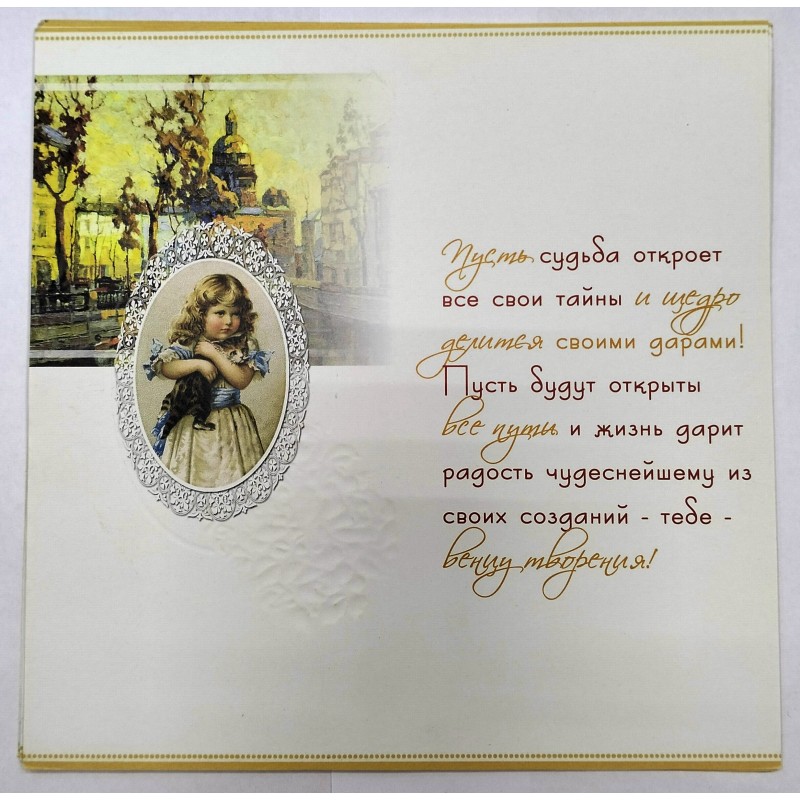 Пусть судьба откроет
все свои тайны и щедро
делится своими дарами!
Пусть будут открыты
все пути и жизнь дарит
радость чудеснейшему из
своих созданий - тебе -
венцу творения!